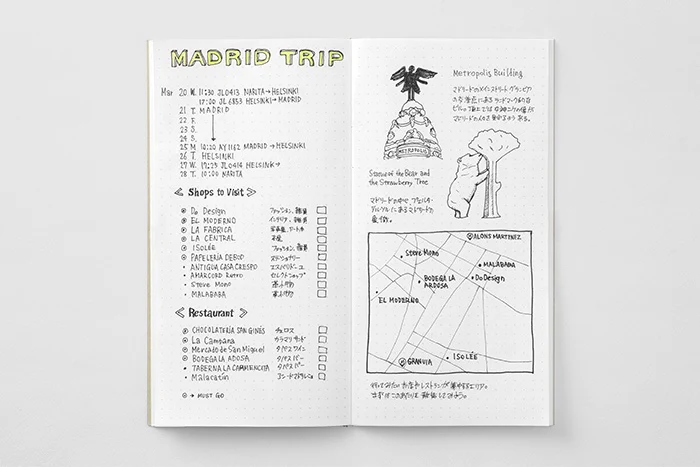 MADRID TRIP
Mar 20 W. 11:30 JL0413 NARITA→HELSINKI
17:00 JL6853 HELSINKI→MADRID
21 T. MADRID
22 F.
23 S.
24 S.
25 M 10:20 AY1162 MADRID→HELSINKI
26 T. HELSINKI
27 W. 17:25 JL0414 HELSINKI→
28 T. 10:00 NARITA
≪ Shops to Visit ≫
Do Design ファッション、雑貨
EL MODERNO インテリア、雑貨
LA FÁBRICA
LA CENTRAL 本屋
ISOLÉE ファッション、雑貨
PAPELERÍA DEBOD ステーショナリー
ANTIGUA CASA CRESPO エスパドリーユ
AMARCORD Retro セレクトショップ
Steve Mono 革小物
MALABABA 革小物
≪ Restaurant ≫
CHOCOLATERÍA SAN GINÉS チュロス
La Campana カラマリサンド
Mercado de San Miguel タパス ワイン
BODEGA LA ADOSA タパスバー
TABERNA LA CARMENCITA タパスバー
Malacatín
⊙ → MUST GO
Metropolis Building
マドリードのメインストリート グランビア
METROPOLIS
Statue of the Bear and
the Strawberry Tree
マドリードの中心 プエルタ・
デル・ソルにあるマドリードの
象徴。
ALONS MARTINEZ
Steve Mono
MALABABA
BODEGA LA
ARDOSA
Do Design
EL MODERNO
GRANVIA
ISOLÉE